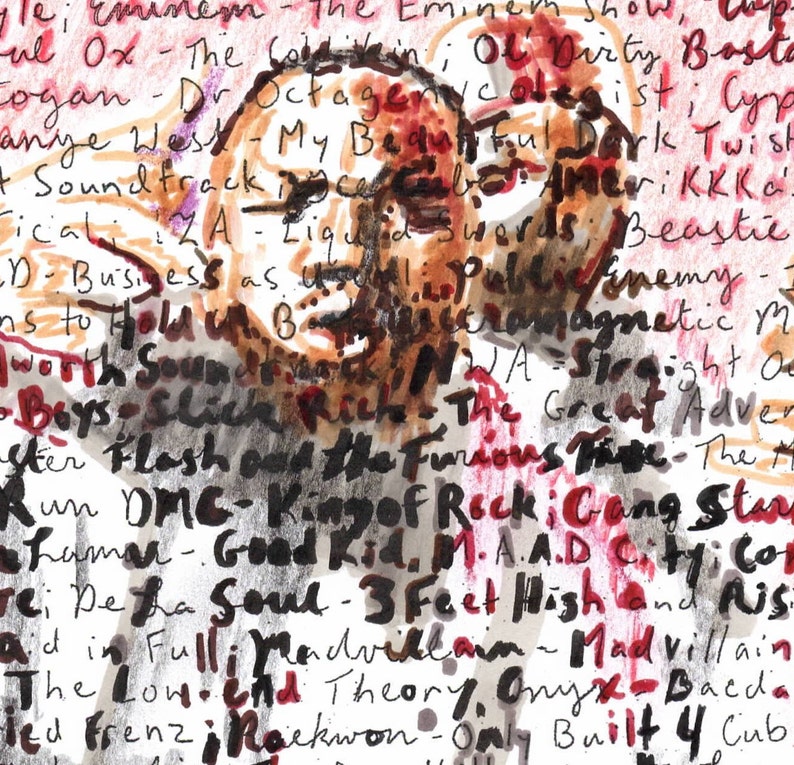 yle; Eminem - The Eminem Show; Cyp
ul Ox - The Cold Vein; Ol' Dirty Basta
ogan - Dr Octagonecologist; Cyp
anye West - My Beautiful Dark Twist
t Soundtrack; Ice Cube - AMERiKKKa's
ical; GZA - Liquid Swords; Beastie
D - Business as Usual; Public Enemy - I
ns to Hold Us Back; Ultramagnetic M
worth Soundtrack; NWA - Straight Ou
o Boys; Slick Rick - The Great Adven
ster Flash and the Furious Five - The M
Run DMC - King of Rock; Gang Starr
Lamar - Good Kid, M.A.A.D City; Co
re; De La Soul - 3 Feet High and Risi
aid in Full; Madvillain - Madvillain
The Low-end Theory; Onyx - Bacda
ied Frenz; Raekwon - Only Built 4 Cub